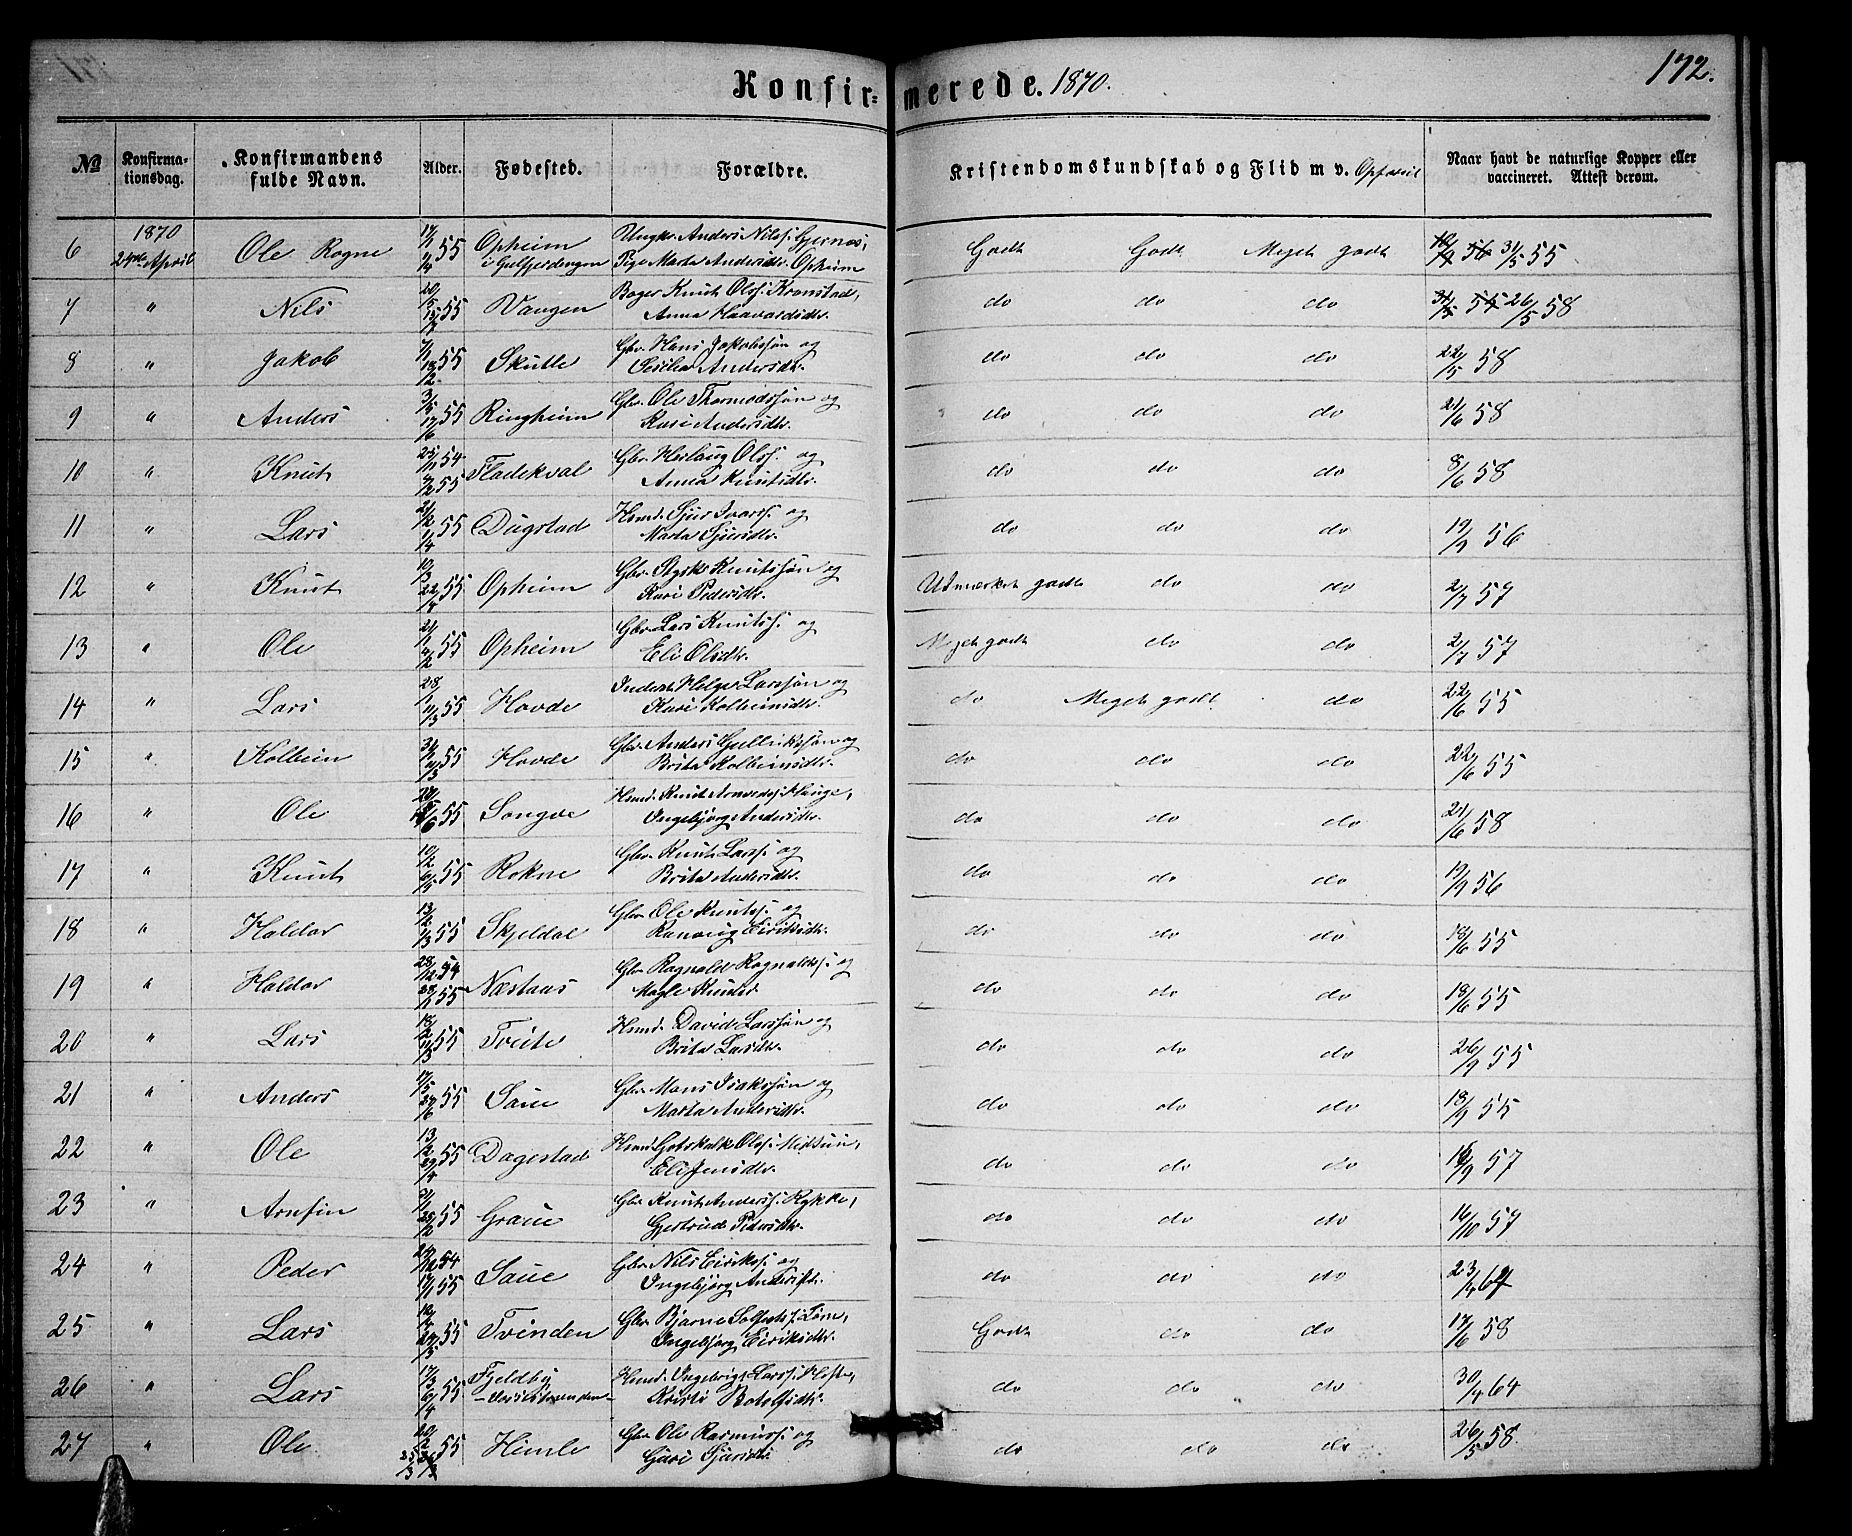 Konfirmerede. 1870.
172.
No
Konfirmationsdag.
Konfirmandens fulde Navn.
Alder.
Fødested.
Forældre.
Kristendomskundskab og Flid m v. Opførsel
Naar havt de naturlige Kopper eller vaccineret. Attest derom.
6 1870 24de April Ole Rogne 55 Opheim Ungk. Anders Nilss. Gjernes, Godt Godt Meget godt 31/5 55
Pige Marta Andersdtr. Opheim
7 " Nils 55 Vangen Bager Knut Olss. Kronstad, do do do 26/5 58
Anna Haavardsdtr.
8 " Jakob 55 Skutle Gbr. Hans Jakobssøn og do do do 22/5 58
Sesilia Andersdtr.
9 " Anders 3/5 17/6 55 Ringheim Gbr. Ole Thormodssøn og do do do 21/6 58
Kari Andersdtr.
10 " Knut 25/11 54 4/2 55 Fladekval Gbr. Herlaug Olss. og do do do 8/6 58
Anna Knutsdtr.
11 " Lars 21/2 1/4 55 Dugstad Hsmd. Sjur Ivarss. og do do do 19/9 56
Marta Sjursdtr.
12 " Knut 55 Opheim Gbr. Styrk Knutssøn og Udmærket godt do do 2/7 57
Kari Pedersdtr.
13 " Ole 21/1 4/2 55 Opheim Gbr. Lars Knutss. og Meget godt do do 2/7 57
Eli Olsdtr.
14 " Lars 28/1 11/3 55 Hovde Inderst Helge Larssøn og do Meget godt do 22/6 55
Kari Kolbeinsdtr.
15 " Kolbein 55 Hovde Gbr. Anders Gulleikssøn og do do do 22/6 55
Brita Kolbeinsdtr.
16 " Ole 55 Songve Hsmd. Knut Hauge, do do do 21/6 58
Ingebjørg Andersdtr.
17 " Knut 10/2 6/5 55 Rokne Gbr. Knut Larss. og do do do 19/9 56
Brita Andersdtr.
18 " Haldor 13/2 1/3 55 Skjeldal Gbr. Ole Knutss. og do do do 18/6 55
Ranveig Eiriksdtr.
19 " Haldor 28/12 54 28/1 55 Næstaas Gbr. Ragnald Ragnaldss. og do do do 18/6 55
Magle Knutsd
20 " Lars 18/2 11/3 55 Tveite Hsmd. David Larssøn og do do do 26/9 55
Brita Larsdtr.
21 " Anders 17/5 24/6 55 Saue Gbr. Mons Isakssøn og do do do 18/9 55
Marta Andersdtr.
22 " Ole 13/2 29/4 55 Dagestad Hsmd. Gotskalk Olss. Midtun, do do do 16/9 57
Eli Jensdtr.
23 " Arnfin 55 Graue Gbr. Knut Anderss. Rykke, do do do 16/10 57
Gjertrud Pedersdtr.
24 " Peder 54 17/1 55 Saue Gbr. Nils Eirikss. og do do do 23/4
Ingebjørg Andersdtr.
25 " Lars 55 Tvinden Gbr. Bjarne Løne, Godt do do 17/6 58
Ingebjørg Eiriksdtr.
26 " Lars 17/3 6/4 55 Fjeldby Hsmd. Ingebrigt Larss. do do do 30/4 64
Kristi Botolfsdtr.
27 " Ole 20/2 25/3 55 Himle Gbr. Ole Rasmuss. og do do do 26/5 58.
Guri Sjursdtr.